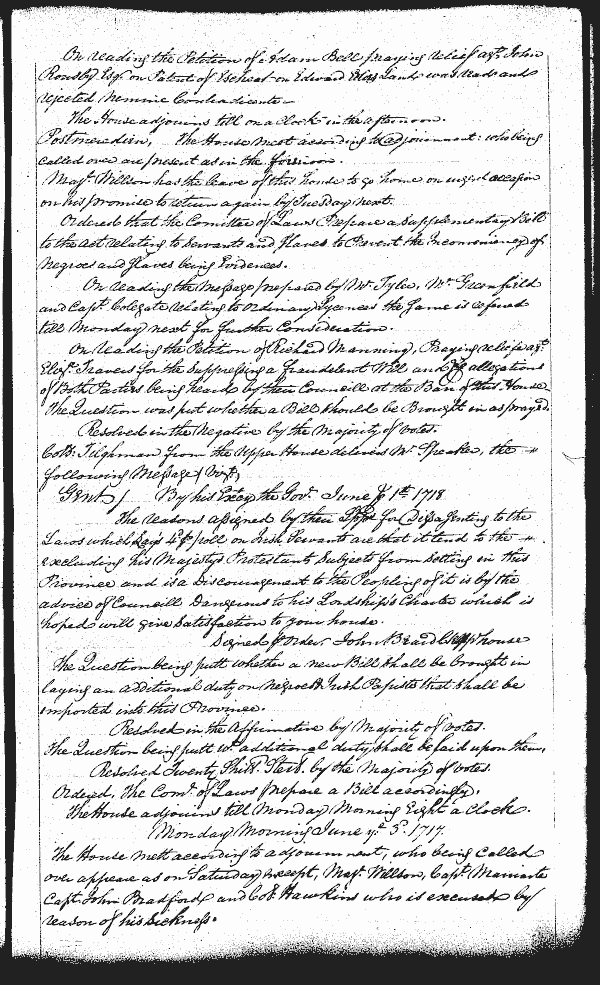 On reading the Petition of Adam Bell praying relief agt. John
Rousby Esqr. on Patent of Escheat on Edward Land was read and
rejected Nemine Contradicente—
The House adjourns till on a Clock in the afternoon.
Postmeredien, The House meet according to adjournment: who being
called over are present as in the forenoon.
Majr. Willson has the leave of this house to go home on urgent occasion
on his promise to return again by Tuesday next.
Ordered that the Comittee of Laws Prepare a Supplementary Bill
to the Act relating to Servants and Slaves to Prevent the Inconveniency of
Negroes and Slaves being Evidences.
On reading the Message prepared by Mr. Tyler, Mr. Greenfield
and Capt. Colegate relating to Ordinary Lycences the same is refered
till Monday next for further Consideration.
On reading the Petition of Richard Manning, Praying releife agt.
Eliz. Francis for the Suppressing a fraudelent Will and allegations
of Both Parties being heard by their Councill at the Bar of this House
The Question was put whether a Bill should be Brought in as prayed.
Resolved in the Negative by the Majority of votes.
Coll. Tilghman from the Upper House delivers Mr. Speaker, the
following Message Vizt,
Gent / By his Excy. the Govr. June ye 1st 1718
The reasons assigned by their Lpps for Dissassenting to the
Laws which Leys 4£ poll on Irish Servants are that it tend to the
excluding his Majestys Protestant Subjects from Setting in this
Province and is a Discouragement to the Peopling of it is by the
advice of Councill Dangerous to his Lordships Charter which is
hoped will give Satisfaction to your house.
Signed p Order John Beard house
The Question being putt whether a new Bill shall be brought in
laying an additional duty on Negroes & Irish Papists that shall be
imported into this Province.
Resolved in the Affirmative by Majority of votes.
The Question being putt wt. additional duty shall be laid upon them,
Resolved Twenty Shill. Sterl. by the Majority of votes.
Ordered, The Comt. of Laws prepare a Bill accordingly.
The House adjourns till Monday Morning Eight a Clock.
Monday Morning June ye. 3d. 1717.
The House mett according to adjournment, who being Called
over appear as on Saturday except, Majr. Willson, Capt. Marriarte
Capt. John Bradford and Coll. Hawkins who is excused by
reason of his sickness.